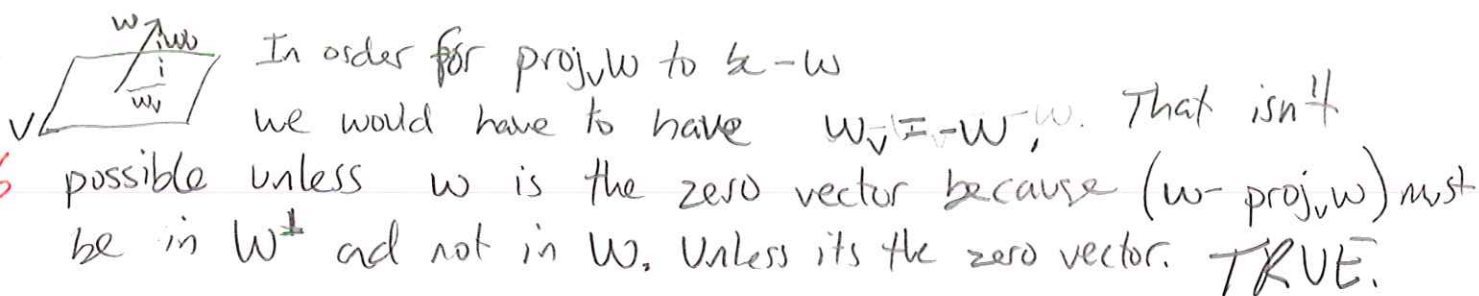 w
In order for proj_v w to be -w
w_v
V
we would have to have w_v = -w, w. That isn't
possible unless w is the zero vector because (w - proj_v w) must
be in W^⊥ and not in W. Unless its the zero vector. TRUE.